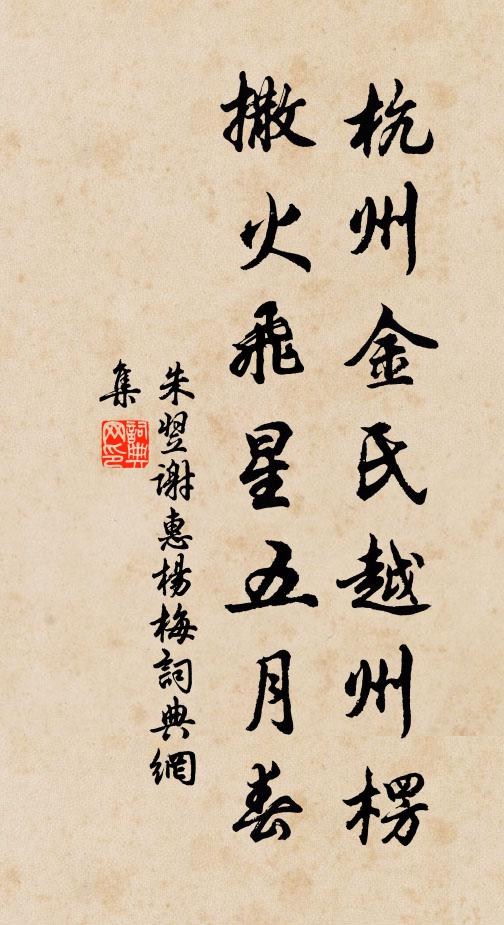 杭州金氏越州楞
撒火飛星五月春
朱翌謝惠楊梅詞典網
集
詞典
网印